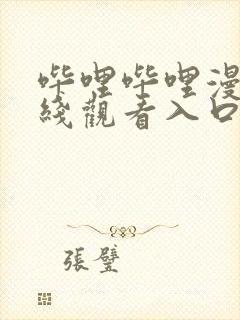 哔哩哔哩漫
綫觀看入口
張璧